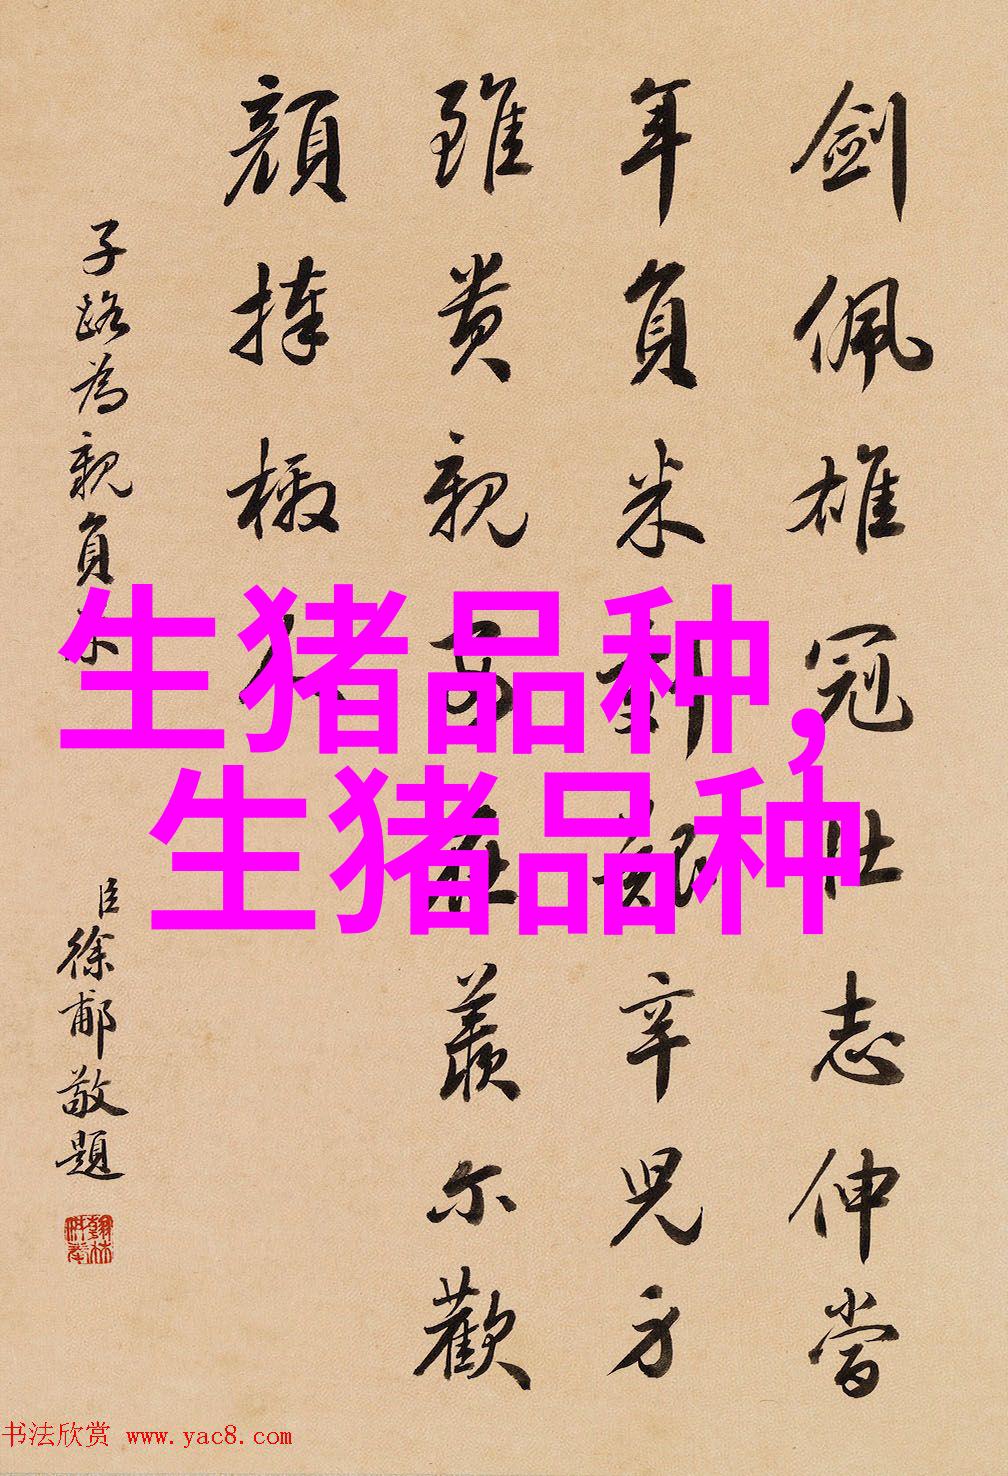 劍佩雄冠仕志伸當
年負米艱辛兒方
雖貴親在羨爾歡
顏捧檄人
子路為親負米
臣徐郙敬題
生猪品种,
生猪品种
书法欣赏 www.yac8.com